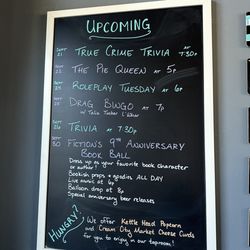 UPCOMING
SEPT 21 TRUE CRIME TRIVIA AT 7:30P
SEPT 23 THE PIE QUEEN AT 5P
SEPT 24 ROLEPLAY TUESDAY AT 6P
SEPT 28 DRAG BINGO AT 7P
W/ TALIA TUCKER L'WHOR
SEPT 26 TRIVIA AT 7:30P
SEPT 30 FICTION'S 9TH ANNIVERSARY
BOOK BALL
DRESS UP AS YOUR FAVORITE BOOK CHARACTER
OR AUTHOR!
BOOKISH PROPS + GOODIES ALL DAY
LIVE MUSIC AT 6P
BALLOON DROP AT 8P
SPECIAL ANNIVERSARY BEER RELEASES
HUNGRY? WE OFFER KETTLE HEAD POPCORN
AND CREAM CITY MARKET CHEESE CURDS
FOR YOU TO ENJOY IN OUR TAPROOM!